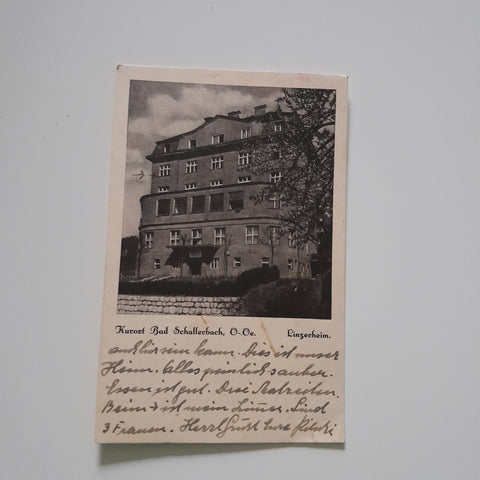 Kurort Bad Schallerbach, O-Oe. Linzerheim.
kann. Dies ist unser
Heim. Alles peinlich sauber.
Essen ist gut. Drei Malzeiten.
Beim → ist mein Zimmer. Sind
3 Frauen. Herzl Gruß Eure